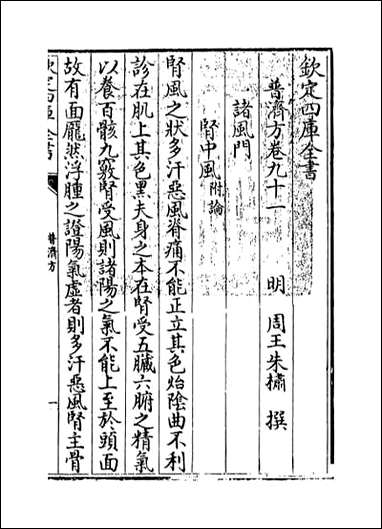 欽定四庫全書
普濟方卷九十一
明 周王朱橚 撰
諸風門
腎中風附論
腎風之狀多汗惡風脊痛不能正立其色炲隂曲不利
診在肌上其色黑夫身之本在腎受五臟六腑之精氣
以養百骸九竅腎受風則諸陽之氣不能上至於頭面
故有面龎然浮腫之證陽氣虛者則多汗惡風腎主骨
欽定四庫全書
普濟方
一